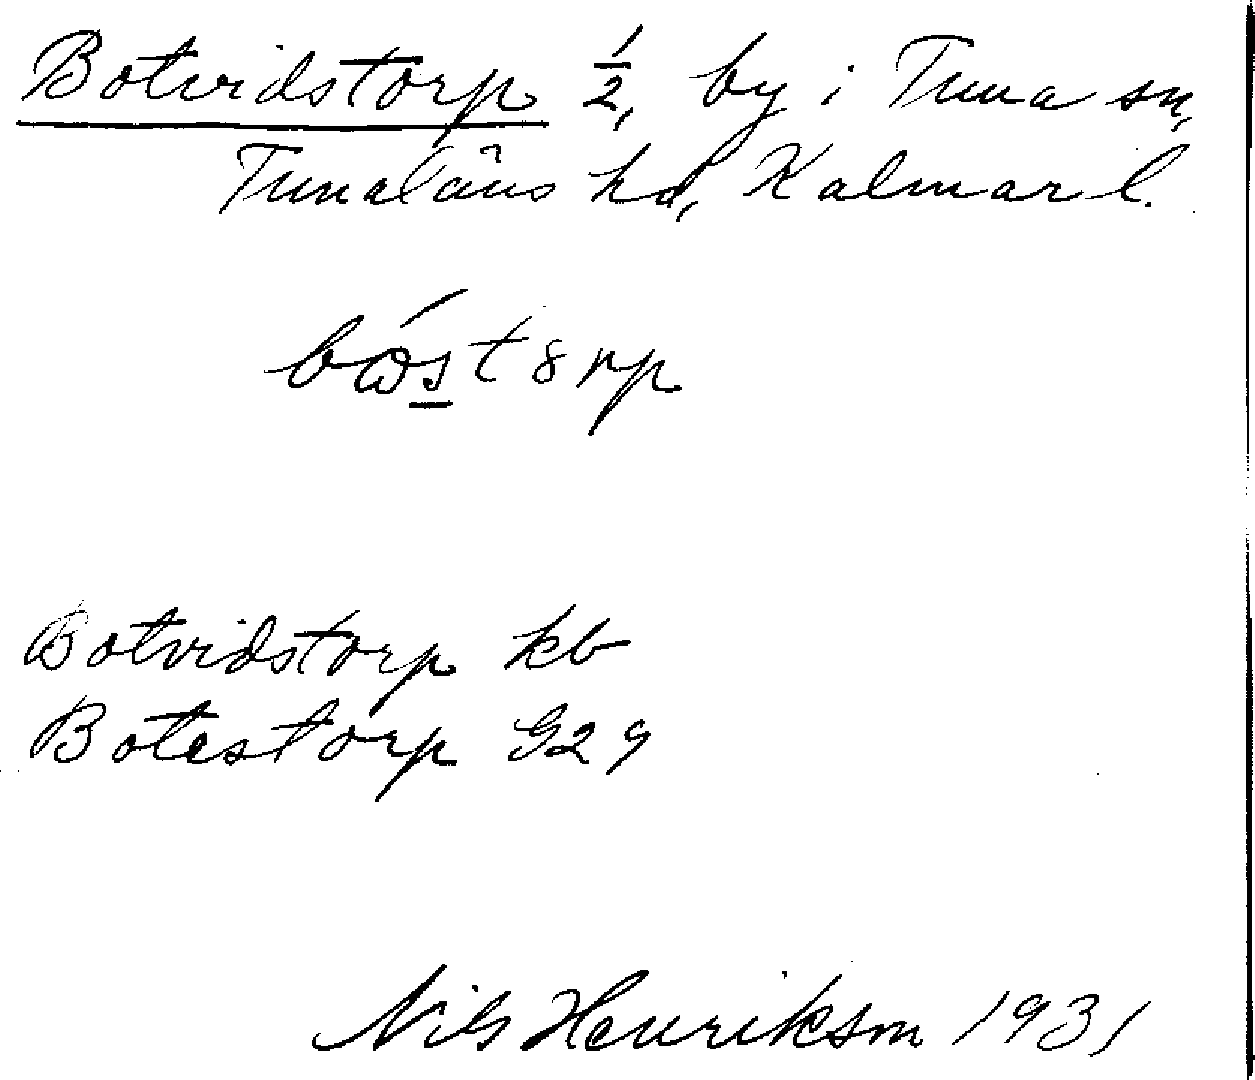 Botvidstorp ½, by i Tuna sn,
Tunaläns hd, Kalmar l.
bώstȣrp
Botvidstorp kb
Botestorp G29
Nils Henriksson 1931